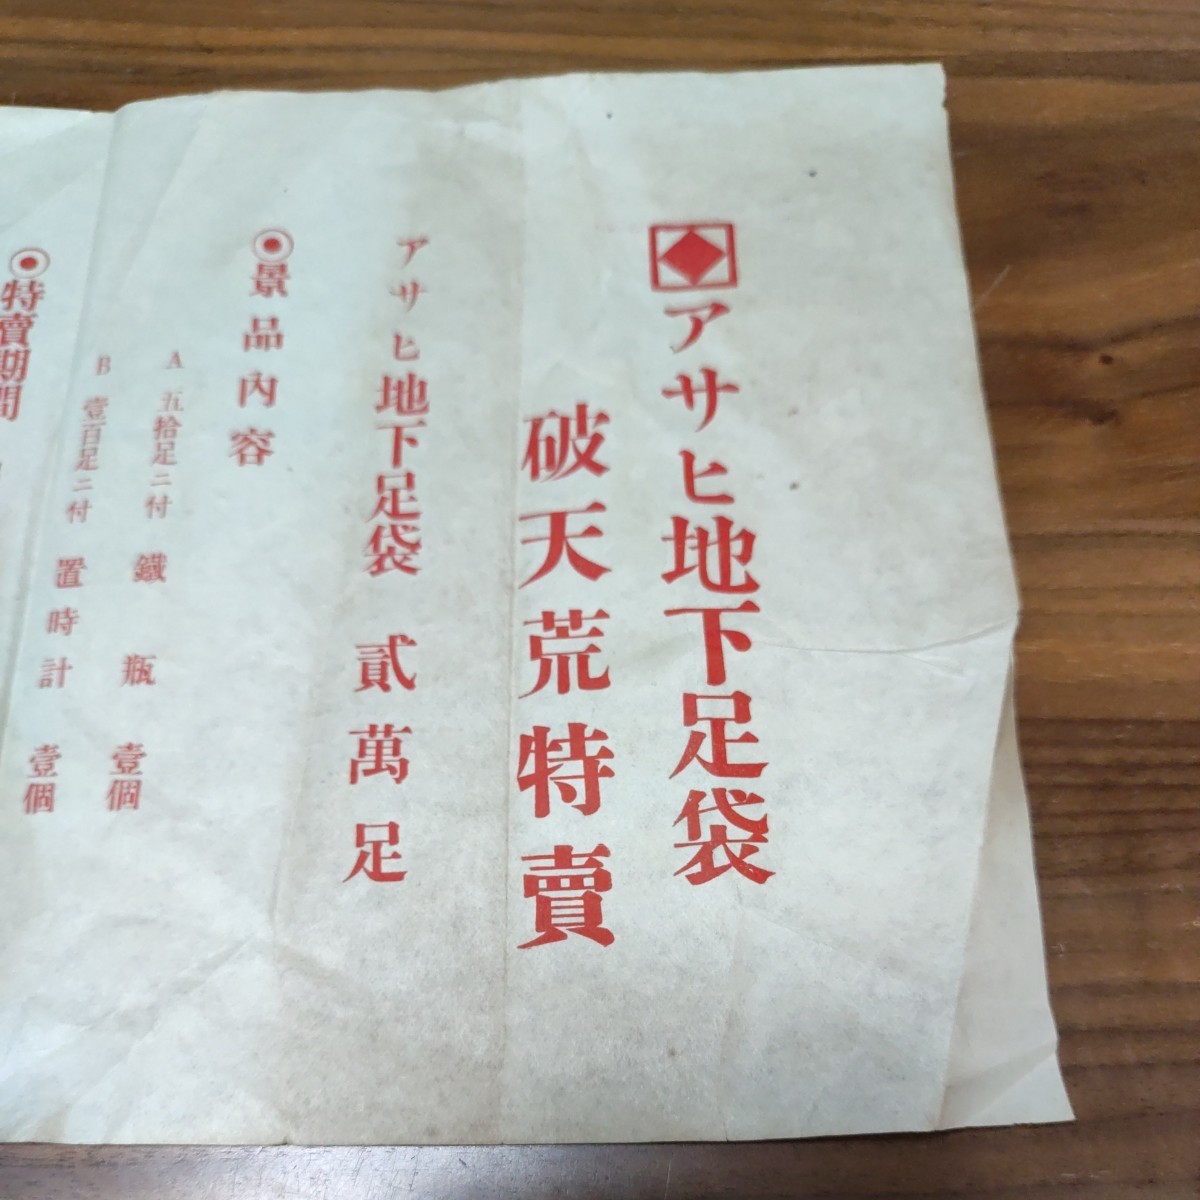 アサヒ地下足袋
破天荒特賣
アサヒ地下足袋 貳萬足
◉景品內容
A 五拾足ニ付 鐵瓶 壹個
B 壹百足ニ付 置時計 壹個
◉特賣期間